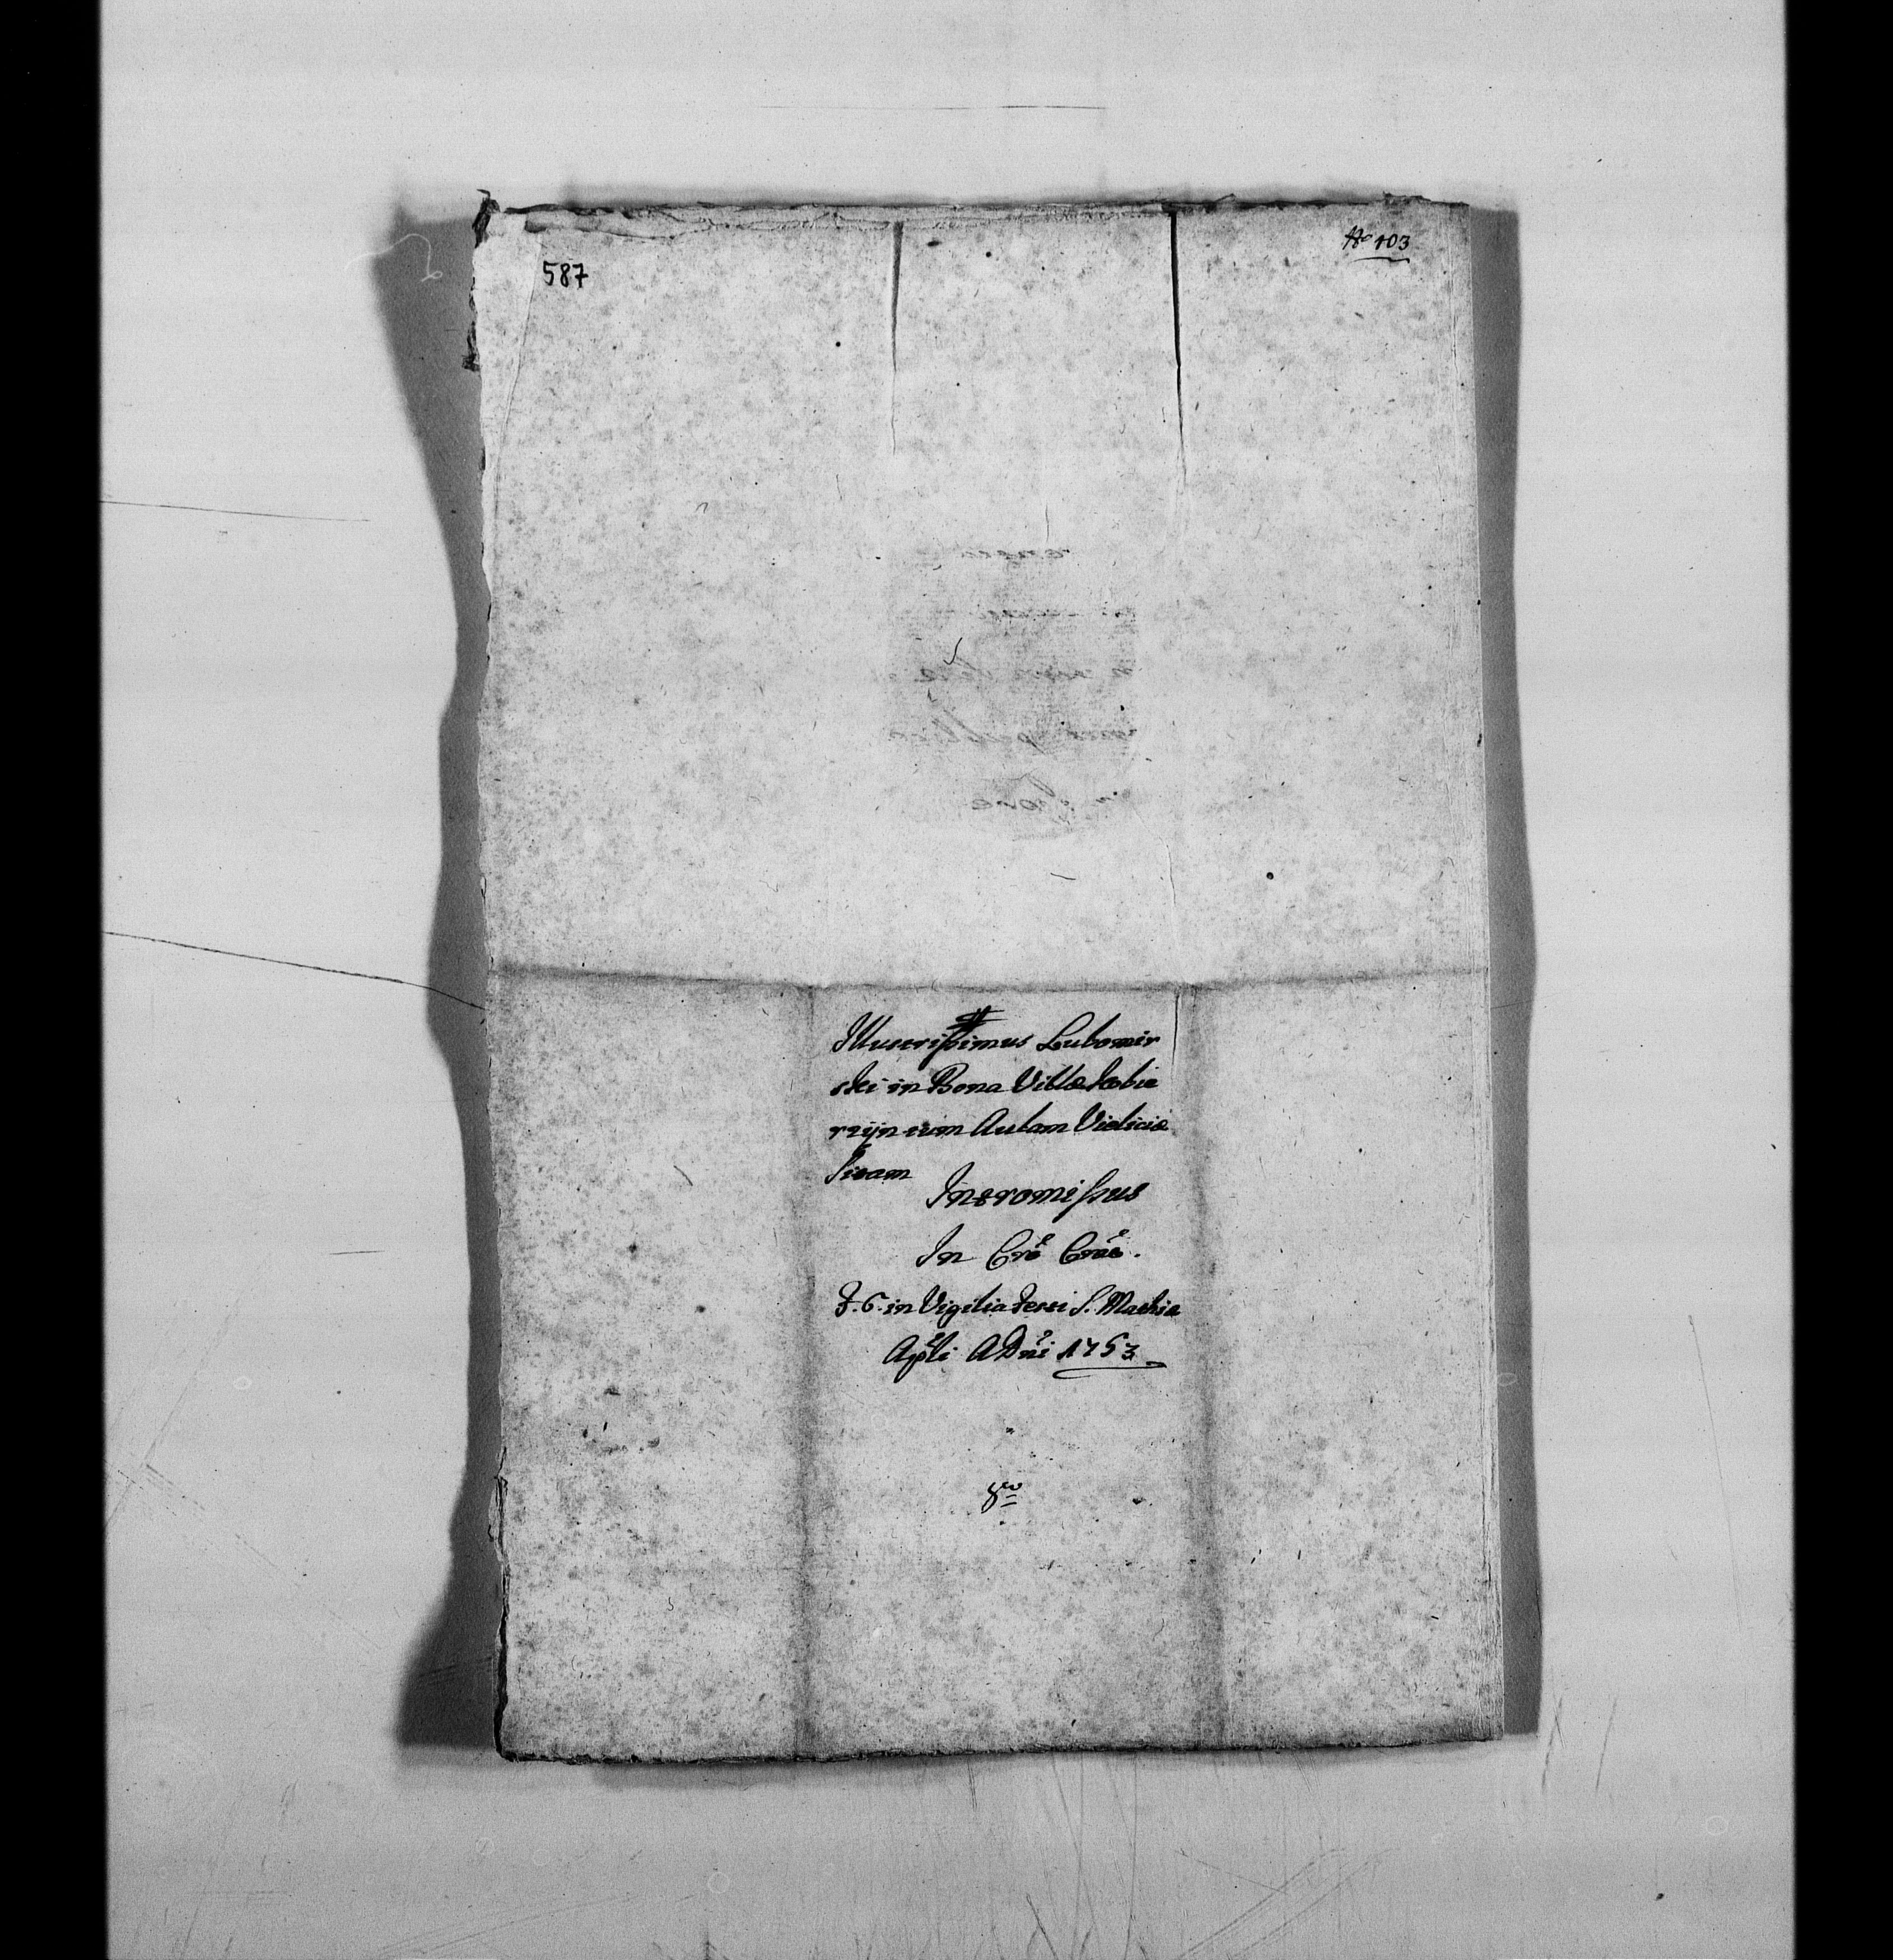 № 103
587
Illustrissimus Lubomir
ski in Bona Villæ Kobie
rzÿn cum Aulam Vieliciæ
Sitam
Intromissus
In Crõ Crac̃.
F. 6. in Vigilia Festi S. Mathiæ
Apl̃i A Dñi 1753